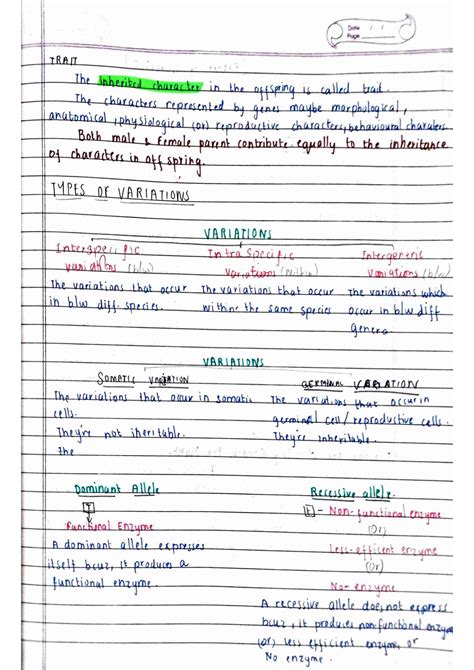 Date / /
Page
TRAIT
The inherited character in the offspring is called trait.
The characters represented by genes maybe morphological,
anatomical, physiological (or) reproductive characters, behavioural charaters.
Both male & female parent contribute equally to the inheritance
of characters in off spring.
TYPES OF VARIATIONS
VARIATIONS
Interspecific Intra Specific Intergeneric
variations (b/w) variations (within) variations (b/w)
The variations that occur The variations that occur The variations which
in b/w diff. species. within the same species occur in b/w diff
genera
VARIATIONS
SOMATIC VARIATION GERMINAL VARIATION
The variations that occur in somatic The variations that occur in
cells. germinal cell / reproductive cells.
They're not inheritable. They're inheritable.
the
Dominant Allele Recessive allele.
T t - Non-functional enzyme
Functional Enzyme (Or)
A dominant allele expresses Less-efficent enzyme
itself bcuz, it produces a (Or)
functional enzyme. No- enzyme
A recessive allele does not express
bcuz, it produces non-functional enzyme
(or) less efficient enzyme, or
No enzyme